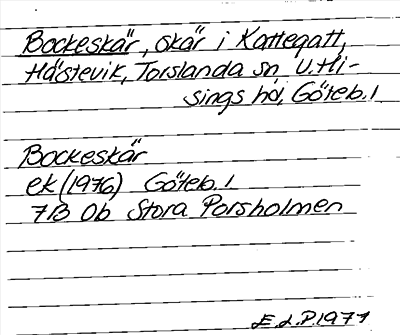 Bockeskär, skär i Kattegatt,
Hästevik, Torslanda sn, V. Hi-
sings hd, Göteb. l
Bockeskär
ek (1976) Göteb. l
7B 0b Stora Porsholmen
E.L.P. 1977